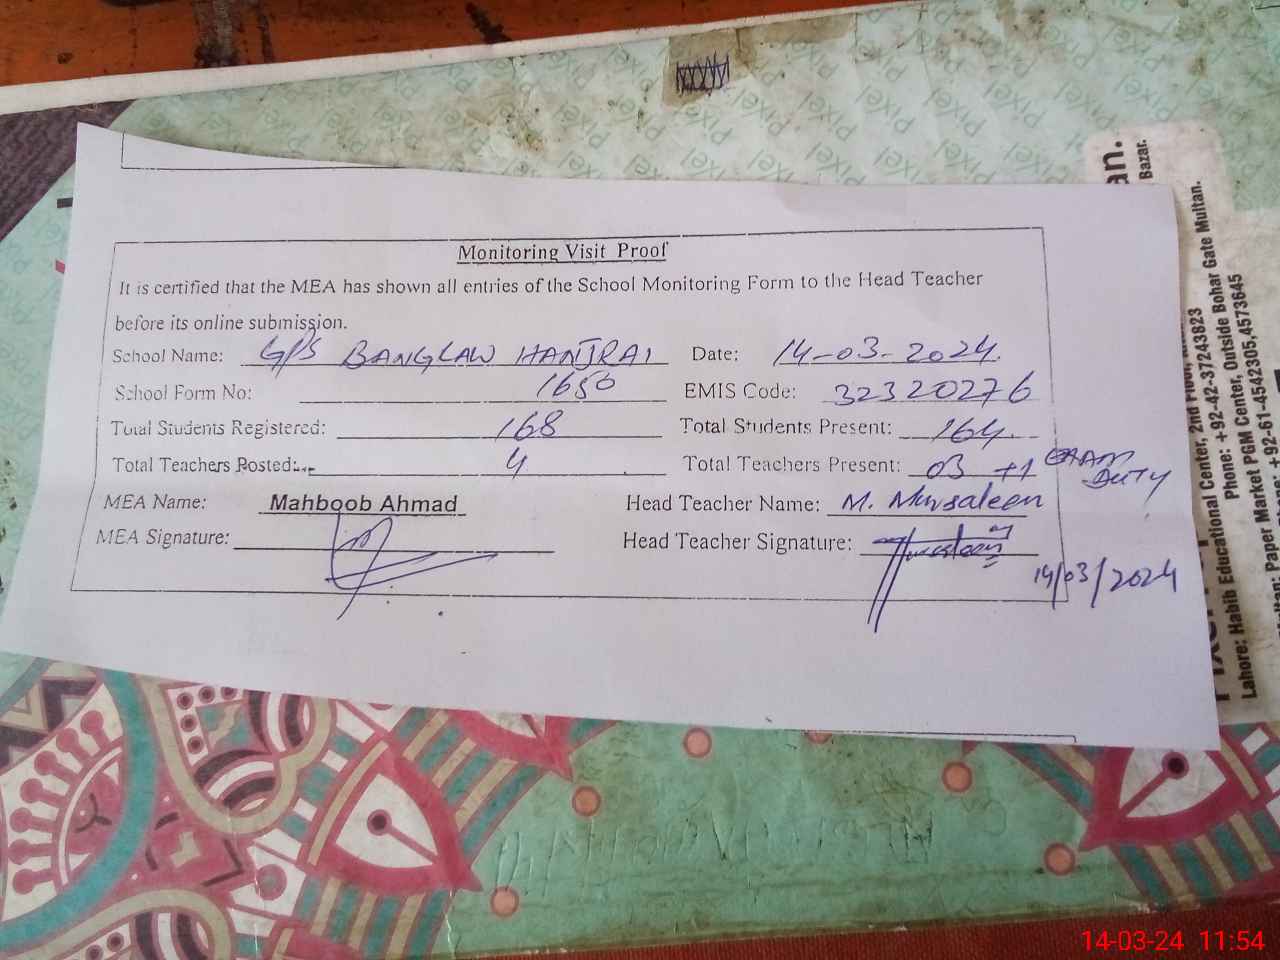 Monitoring Visit Proof
It is certified that the MEA has shown all entries of the School Monitoring Form to the Head Teacher
before its online submission.
School Name: G/PS BANGLAW HANJRAI Date: 14-03-2024
School Form No: 1650 EMIS Code: 32320276
Total Students Registered: 168 Total Students Present: 164
Total Teachers Posted: 4 Total Teachers Present: 03 +1 EXAM DUTY
MEA Name: Mahboob Ahmad Head Teacher Name: M. Mursaleen
MEA Signature: Head Teacher Signature:
14/03/2024
pixel
an.
Bazar.
Lahore: Habib Educational Center, 2nd Floor,
Phone: +92-42-37243823
Paper Market PGM Center, Outside Bohar Gate Multan.
+92-61-4542305,4573645
14-03-24 11:54